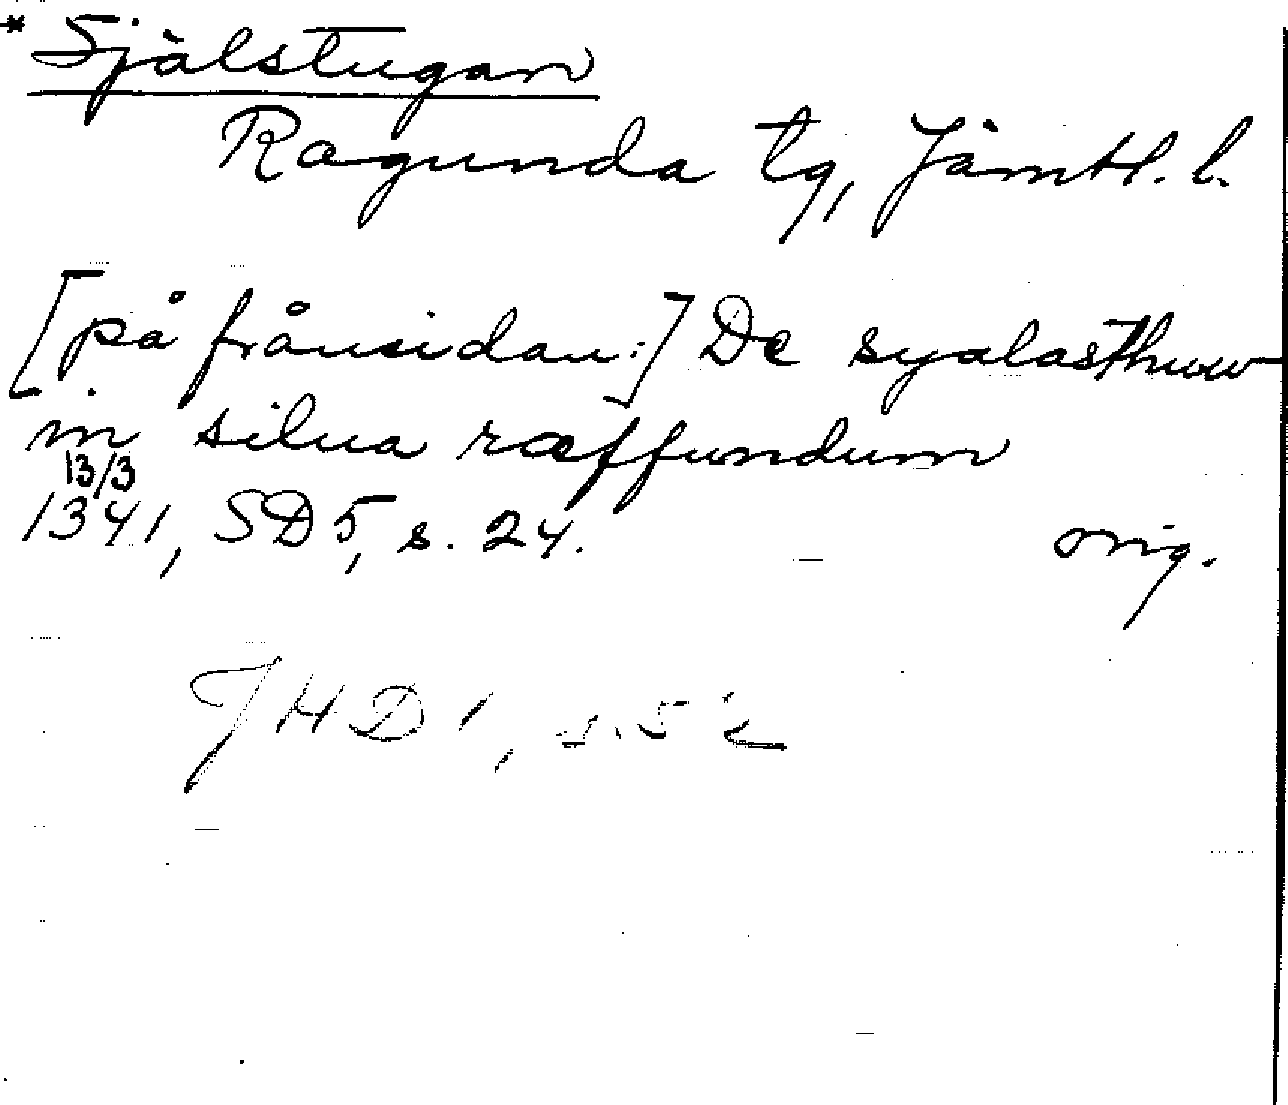 * Själstugan
Ragunda tg, Jämtl. l.
[på frånsidan:] De syalasthuw
in silua ræffundum
13/3
1341, SD 5, s. 24. orig.
JHD 1, s. 52